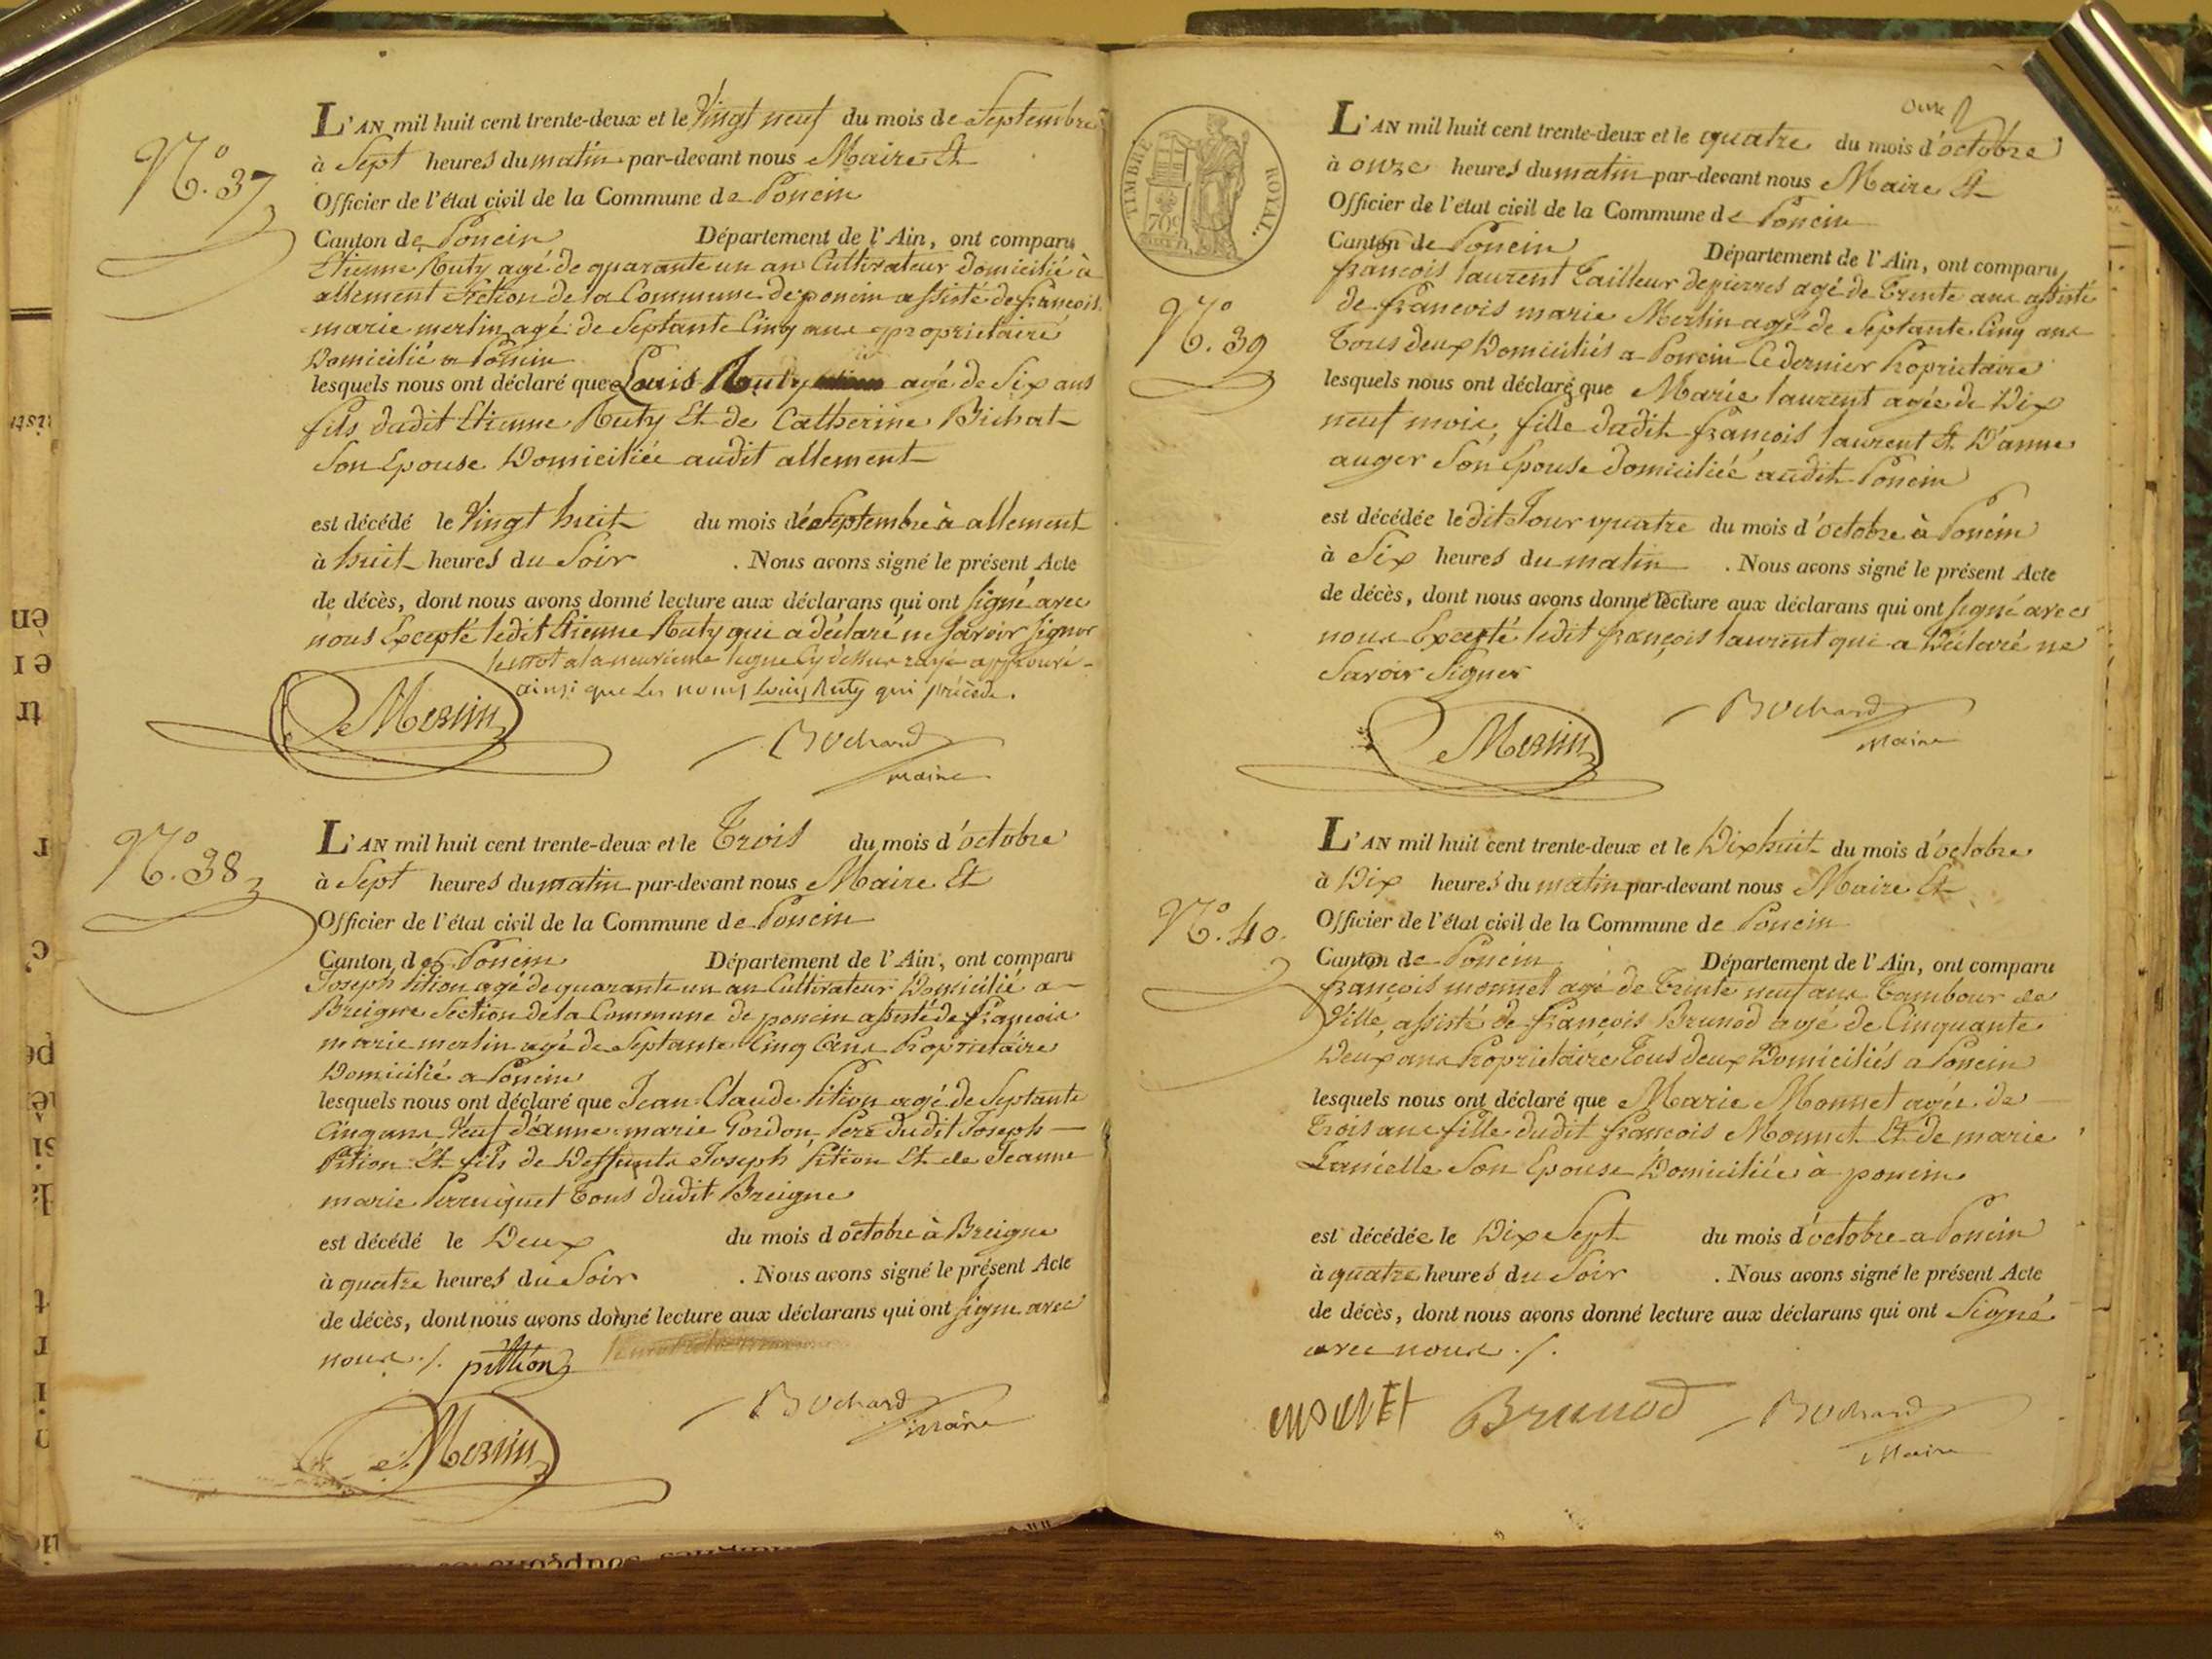 N.º 37
L'AN mil huit cent trente-deux et le Vingt neuf du mois de Septembre
à Sept heures du matin par-devant nous Maire Et
Officier de l'état civil de la Commune de Poncin
Canton de Poncin Département de l'Ain, ont comparu
Etienne Ruty agé de quarante un an Cultivateur domicilié à
allement Section de la Commune de poncin assisté de françois
marie merlin agé de Septante Cinq ans proprietaire
Domicilié a Poncin
lesquels nous ont déclaré que Louis Ruty agé de Six ans
fils dudit Etienne Ruty Et de Catherine Bichat
Son Epouse Domiciliée audit allement
est décédé le Vingt huit du mois de Septembre à allement
à huit heures du Soir . Nous avons signé le présent Acte
de décès, dont nous avons donné lecture aux déclarans qui ont Signé avec
nous Excepté ledit Etienne Ruty qui a déclaré ne Savoir Signer
le mot a la neuvieme ligne Cy dessus rayé approuvé
ainsi que les noms Louis Ruty qui précède.
Merlin
Bochard
maire
N.º 38
L'AN mil huit cent trente-deux et le Trois du mois d'octobre
à Sept heures du matin par-devant nous Maire Et
Officier de l'état civil de la Commune de Poncin
Canton de Poncin Département de l'Ain, ont comparu
Joseph Pition agé de quarante un an Cultivateur Domicilié a
Breigne Section de la Commune de poncin assisté de françois
marie merlin agé de Septante Cinq ans Proprietaire
Domicilié a Poncin
lesquels nous ont déclaré que Jean Claude Pition agé de Septante
Cinq ans Veuf d'anne marie Gordon Pere dudit Joseph
Pition Et fils de Deffunts Joseph Pition Et de Jeanne
marie Perruquet Tous dudit Breigne
est décédé le Deux du mois d'octobre à Breigne
à quatre heures du Soir . Nous avons signé le présent Acte
de décès, dont nous avons donné lecture aux déclarans qui ont Signé avec
nous ./. pittion
Merlin
Bochard
maire
TIMBRE ROYAL.
N.º 39
L'AN mil huit cent trente-deux et le quatre du mois d'octobre
à onze heures du matin par-devant nous Maire Et
Officier de l'état civil de la Commune de Poncin
Canton de Poncin Département de l'Ain, ont comparu
françois laurent Tailleur de pierres agé de Trente ans assisté
de françois marie Merlin agé de Septante Cinq ans
Tous deux Domiciliés a Poncin Ce dernier Proprietaire
lesquels nous ont déclaré que Marie laurent agée de Dix
neuf mois, fille dudit françois laurent Et D'anne
auger Son Epouse domiciliée audit Poncin
est décédée le dit Jour quatre du mois d'octobre à Poncin
à Six heures du matin . Nous avons signé le présent Acte
de décès, dont nous avons donné lecture aux déclarans qui ont Signé avec
nous Excepté ledit françois laurent qui a Déclaré ne
Savoir Signer
Merlin
Bochard
Maire
N.º 40.
L'AN mil huit cent trente-deux et le Dix huit du mois d'octobre
à Dix heures du matin par-devant nous Maire Et
Officier de l'état civil de la Commune de Poncin
Canton de Poncin Département de l'Ain, ont comparu
françois monnet agé de Trente neuf ans Tambour de
Ville, assisté de françois Brunod agé de Cinquante
Deux ans Proprietaire Tous deux Domiciliés a Poncin
lesquels nous ont déclaré que Marie Monnet agée de
Trois ans fille dudit françois Monnet Et de marie
Lanielle Son Epouse Domiciliée à poncin
est décédée le Dix Sept du mois d'octobre a Poncin
à quatre heures du Soir . Nous avons signé le présent Acte
de décès, dont nous avons donné lecture aux déclarans qui ont Signé
avec nous ./.
MONET Brunod Bochard
Maire